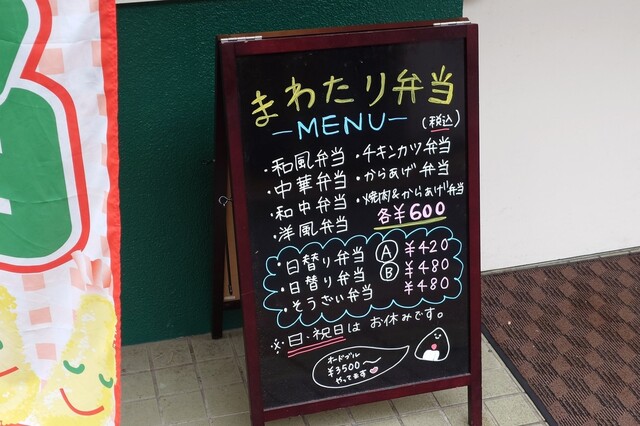 まわたり弁当
－MENU－ (税込)
・和風弁当 ・チキンカツ弁当
・中華弁当 ・からあげ弁当
・和中弁当 ・焼肉&からあげ弁当
・洋風弁当 各¥600
・日替り弁当 Ⓐ ¥420
・日替り弁当 Ⓑ ¥480
・そうざい弁当 ¥480
※・日・祝日は お休みです。
オードブル
¥3500〜
やってます